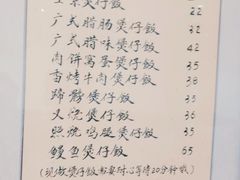 煲仔饭 22
广式腊肠煲仔饭 32
广式腊味煲仔饭 42
肉饼窝蛋煲仔饭 35
香烤牛肉煲仔饭 38
蹄髈煲仔饭 35
叉烧煲仔饭 36
照烧鸡腿煲仔饭 35
鳗鱼煲仔饭 65
(现做煲仔饭需要耐心等待20分钟哦)